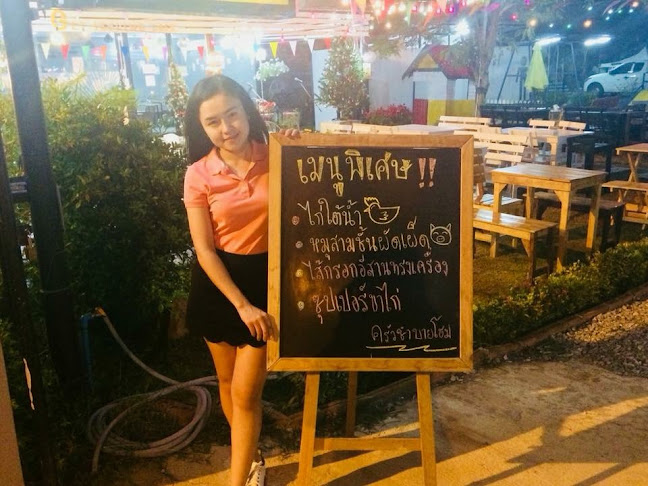 เมนูพิเศษ !!
• ไก่ใต้น้ำ
• หมูสามชั้นผัดเผ็ด
• ไส้กรอกอีสานทรงเครื่อง
• ซุปเปอร์ขาไก่
ครัวชาบายโฮม